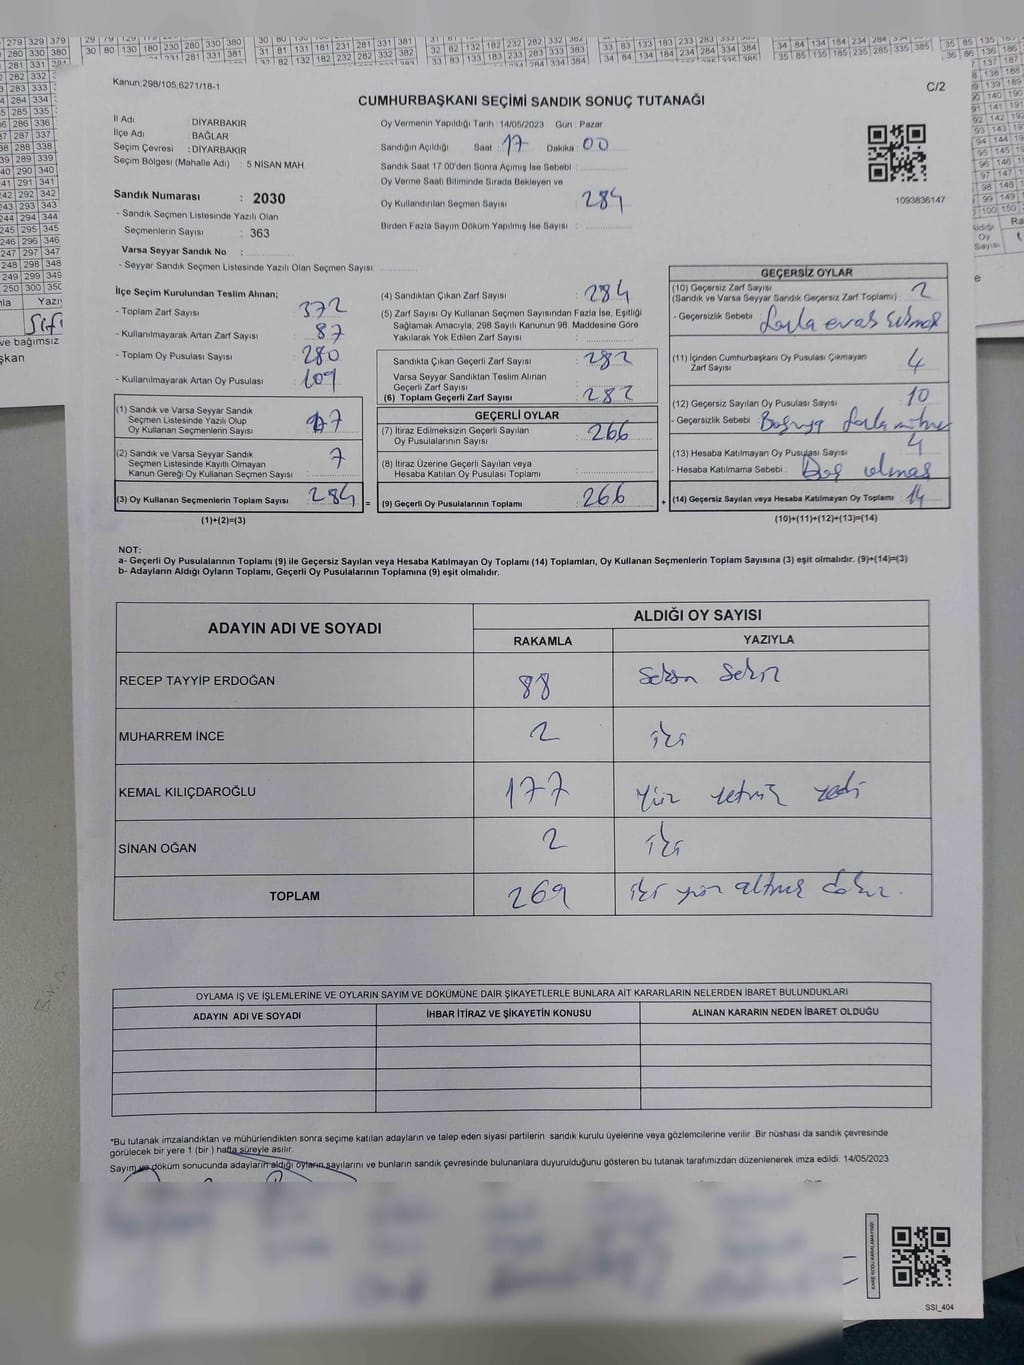 Kanun:298/105,6271/18-1
C/2
CUMHURBAŞKANI SEÇİMİ SANDIK SONUÇ TUTANAĞI
İl Adı : DİYARBAKIR
İlçe Adı : BAĞLAR
Seçim Çevresi : DİYARBAKIR
Seçim Bölgesi (Mahalle Adı) : 5 NİSAN MAH
Sandık Numarası : 2030
- Sandık Seçmen Listesinde Yazılı Olan
Seçmenlerin Sayısı : 363
Varsa Seyyar Sandık No :
- Seyyar Sandık Seçmen Listesinde Yazılı Olan Seçmen Sayısı
Oy Vermenin Yapıldığı Tarih :14/05/2023 Gün : Pazar
Sandığın Açıldığı Saat 17 Dakika 00
Sandık Saat 17.00'den Sonra Açımış İse Sebebi :
Oy Verme Saati Bitiminde Sırada Bekleyen ve
Oy Kullandırılan Seçmen Sayısı : 284
Birden Fazla Sayım Döküm Yapılmış İse Sayısı :
1093836147
İlçe Seçim Kurulundan Teslim Alınan;
- Toplam Zarf Sayısı : 372
- Kullanılmayarak Artan Zarf Sayısı : 87
- Toplam Oy Pusulası Sayısı : 280
- Kullanılmayarak Artan Oy Pusulası : 109
(1) Sandık ve Varsa Seyyar Sandık
Seçmen Listesinde Yazılı Olup
Oy Kullanan Seçmenlerin Sayısı
(2) Sandık ve Varsa Seyyar Sandık
Seçmen Listesinde Kayıtlı Olmayan
Kanun Gereği Oy Kullanan Seçmen Sayısı : 7
(3) Oy Kullanan Seçmenlerin Toplam Sayısı : 284 =
(1)+(2)=(3)
(4) Sandıktan Çıkan Zarf Sayısı : 284
(5) Zarf Sayısı Oy Kullanan Seçmen Sayısından Fazla İse, Eşitliği
Sağlamak Amacıyla, 298 Sayılı Kanunun 98. Maddesine Göre
Yakılarak Yok Edilen Zarf Sayısı :
Sandıkta Çıkan Geçerli Zarf Sayısı : 282
Varsa Seyyar Sandıktan Teslim Alınan
Geçerli Zarf Sayısı :
(6) Toplam Geçerli Zarf Sayısı : 282
GEÇERLİ OYLAR
(7) İtiraz Edilmeksizin Geçerli Sayılan
Oy Pusulalarının Sayısı : 266
(8) İtiraz Üzerine Geçerli Sayılan veya
Hesaba Katılan Oy Pusulası Toplamı :
(9) Geçerli Oy Pusulalarının Toplamı : 266 +
GEÇERSİZ OYLAR
(10) Geçersiz Zarf Sayısı
(Sandık ve Varsa Seyyar Sandık Geçersiz Zarf Toplamı) : 2
- Geçersizlik Sebebi : fazla evat
(11) İçinden Cumhurbaşkanı Oy Pusulası Çıkmayan
Zarf Sayısı : 4
(12) Geçersiz Sayılan Oy Pusulası Sayısı : 10
- Geçersizlik Sebebi : fazla mühür
(13) Hesaba Katılmayan Oy Pusulası Sayısı : 4
- Hesaba Katılmama Sebebi : Boş olması
(14) Geçersiz Sayılan veya Hesaba Katılmayan Oy Toplamı : 14
(10)+(11)+(12)+(13)=(14)
NOT:
a- Geçerli Oy Pusulalarının Toplamı (9) ile Geçersiz Sayılan veya Hesaba Katılmayan Oy Toplamı (14) Toplamları, Oy Kullanan Seçmenlerin Toplam Sayısına (3) eşit olmalıdır. (9)+(14)=(3)
b- Adayların Aldığı Oyların Toplamı, Geçerli Oy Pusulalarının Toplamına (9) eşit olmalıdır.
ADAYIN ADI VE SOYADI
ALDIĞI OY SAYISI
RAKAMLA YAZIYLA
RECEP TAYYİP ERDOĞAN 88 Seksen Sekiz
MUHARREM İNCE 2 iki
KEMAL KILIÇDAROĞLU 177 Yüz yetmiş yedi
SİNAN OĞAN 2 iki
TOPLAM 269 iki yüz altmış dokuz.
OYLAMA İŞ VE İŞLEMLERİNE VE OYLARIN SAYIM VE DÖKÜMÜNE DAİR ŞİKAYETLERLE BUNLARA AİT KARARLARIN NELERDEN İBARET BULUNDUKLARI
ADAYIN ADI VE SOYADI İHBAR İTİRAZ VE ŞİKAYETİN KONUSU ALINAN KARARIN NEDEN İBARET OLDUĞU
*Bu tutanak imzalandıktan ve mühürlendikten sonra seçime katılan adayların ve talep eden siyasi partilerin sandık kurulu üyelerine veya gözlemcilerine verilir .Bir nüshası da sandık çevresinde
görülecek bir yere 1 (bir ) hafta süreyle asılır.
Sayım ve döküm sonucunda adayların aldığı oyların sayılarını ve bunların sandık çevresinde bulunanlara duyurulduğunu gösteren bu tutanak tarafımızdan düzenlenerek imza edildi. 14/05/2023
KARE KODU KARALAMAYINIZ!
SSI_404